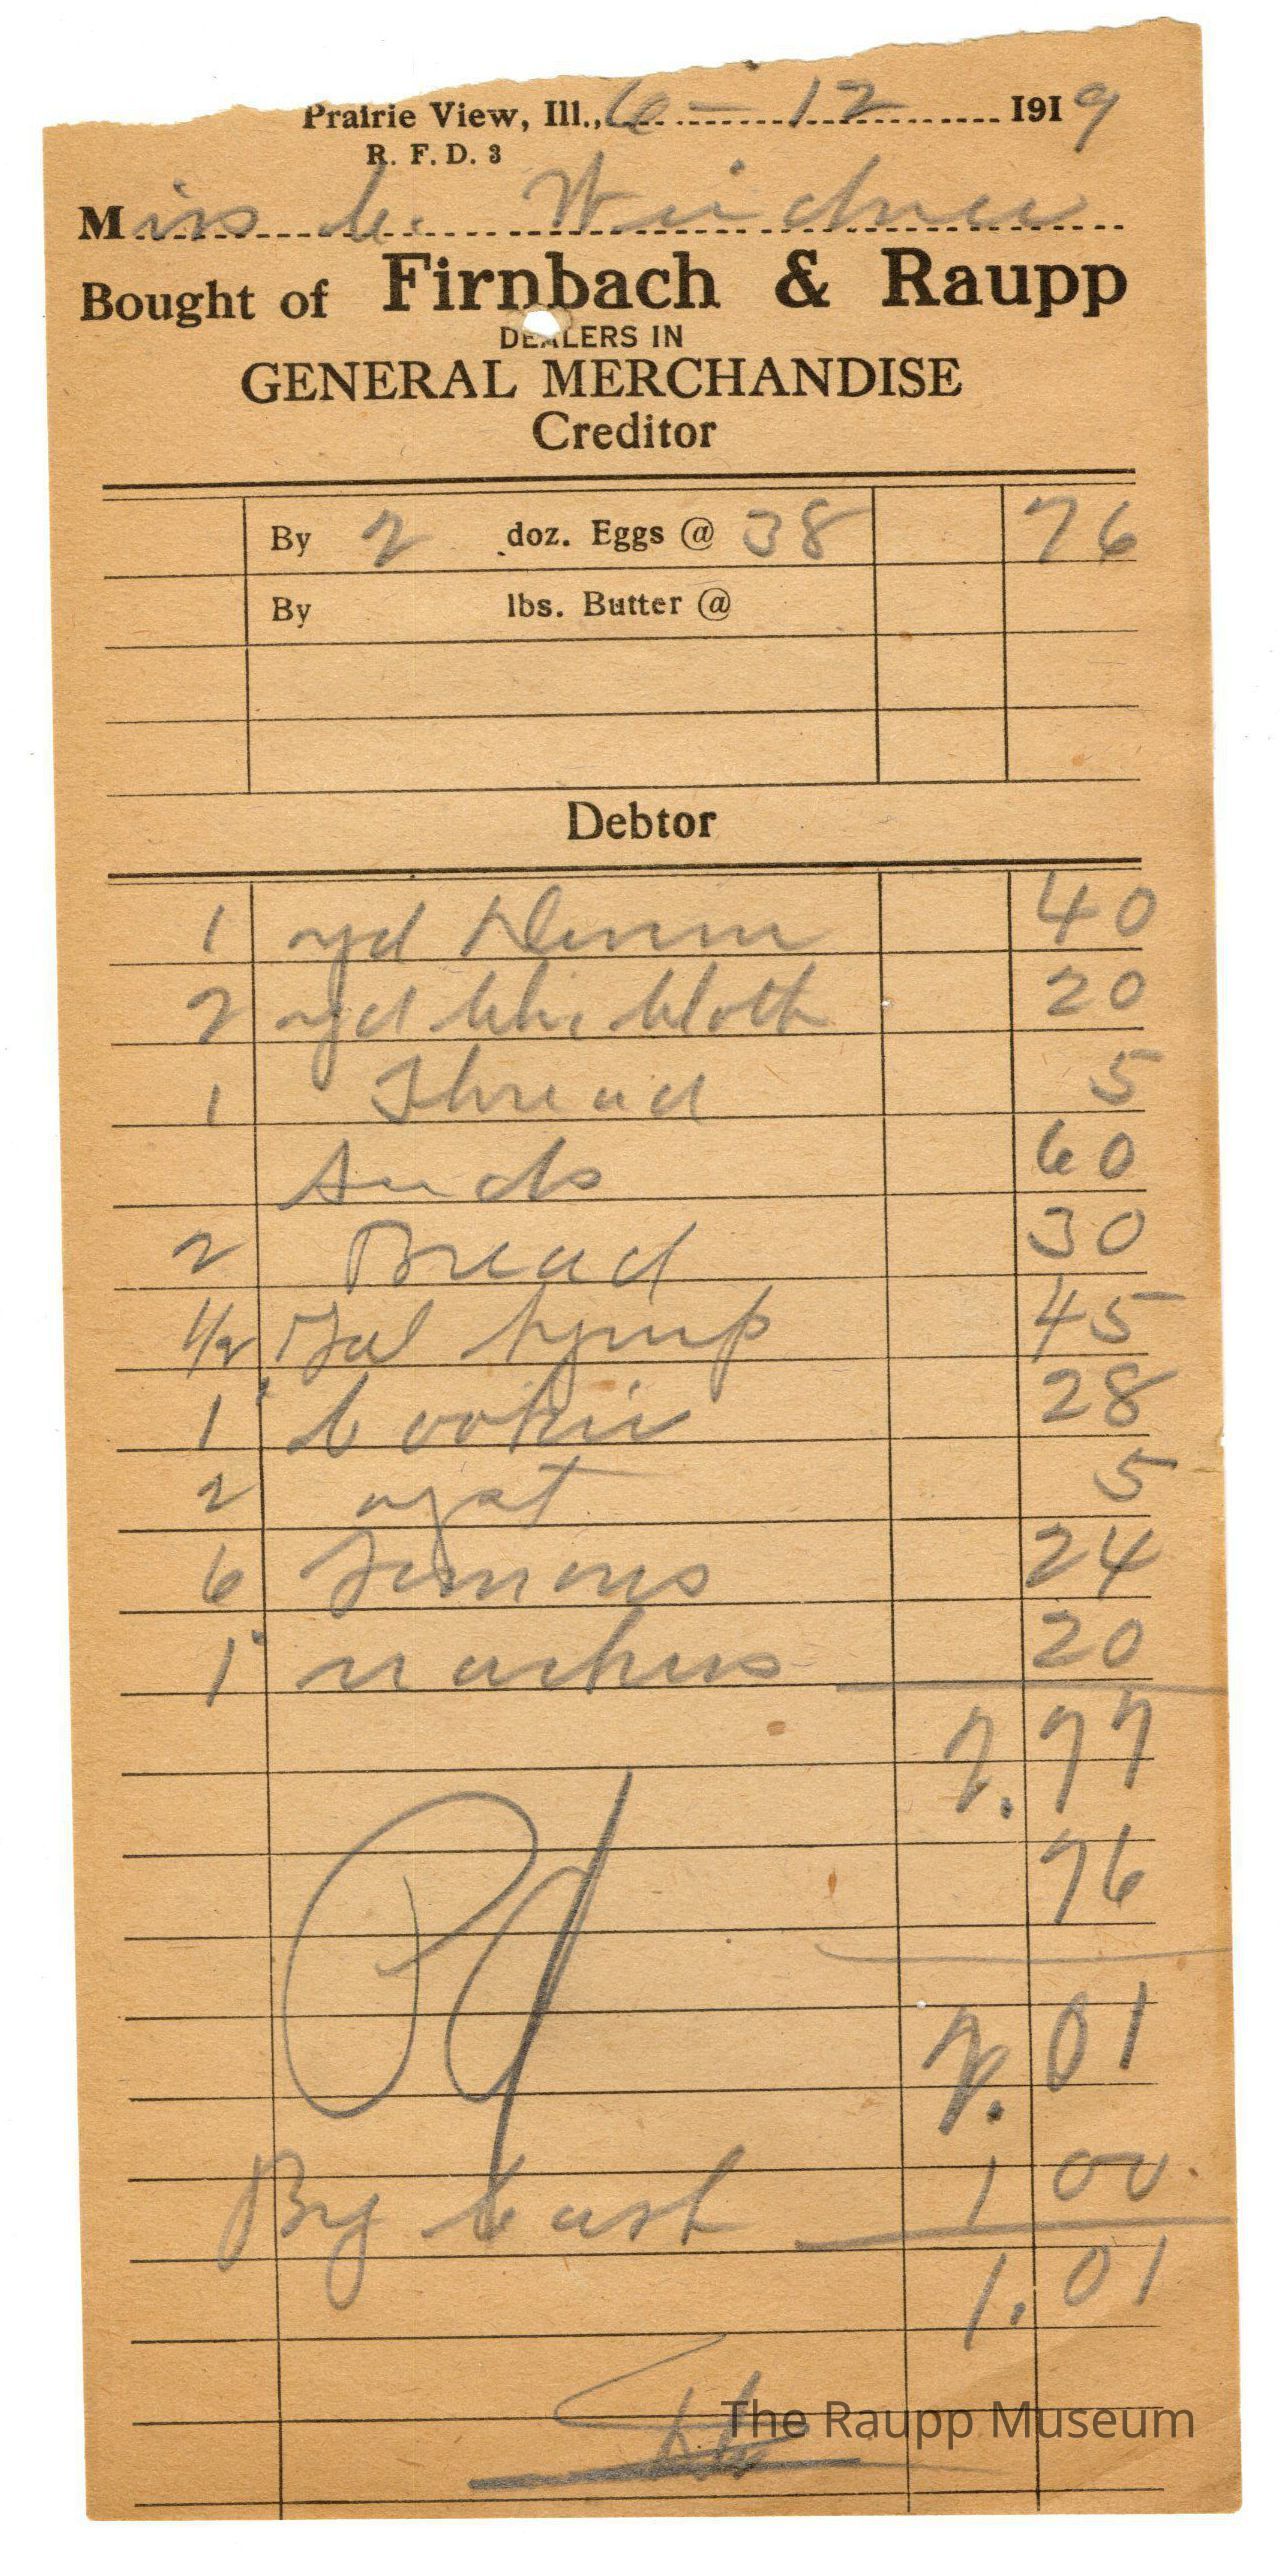 Prairie View, Ill., 6 - 12 1919
R. F. D. 3
Miss C. Weidner
Bought of Firnbach & Raupp
DEALERS IN
GENERAL MERCHANDISE
Creditor
By 2 doz. Eggs @ 38 76
By lbs. Butter @
Debtor
1 yd Denim 40
2 yd Chi Cloth 20
1 Thread 5
60
2 Bread 30
1/2 Gal Syrup 45
1 Cookie 28
2 yst 5
6 Lemons 24
1 20
2.77
76
2.01
Pd
By Cash 1 00
1.01
The Raupp Museum